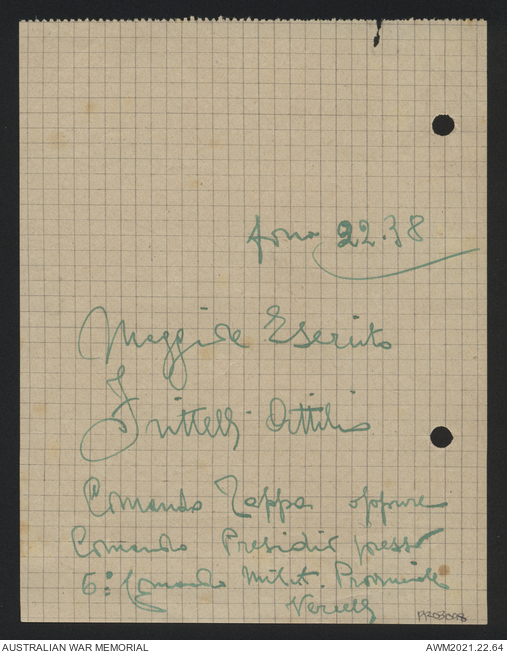 fono 22.38
Maggiore Esercito
Frittelli Attilio
Comando Tappa oppure
Comando Presidio presso
6º Comando Milit. Provinciale
Vercelli
PR03098
AUSTRALIAN WAR MEMORIAL
AWM2021.22.64